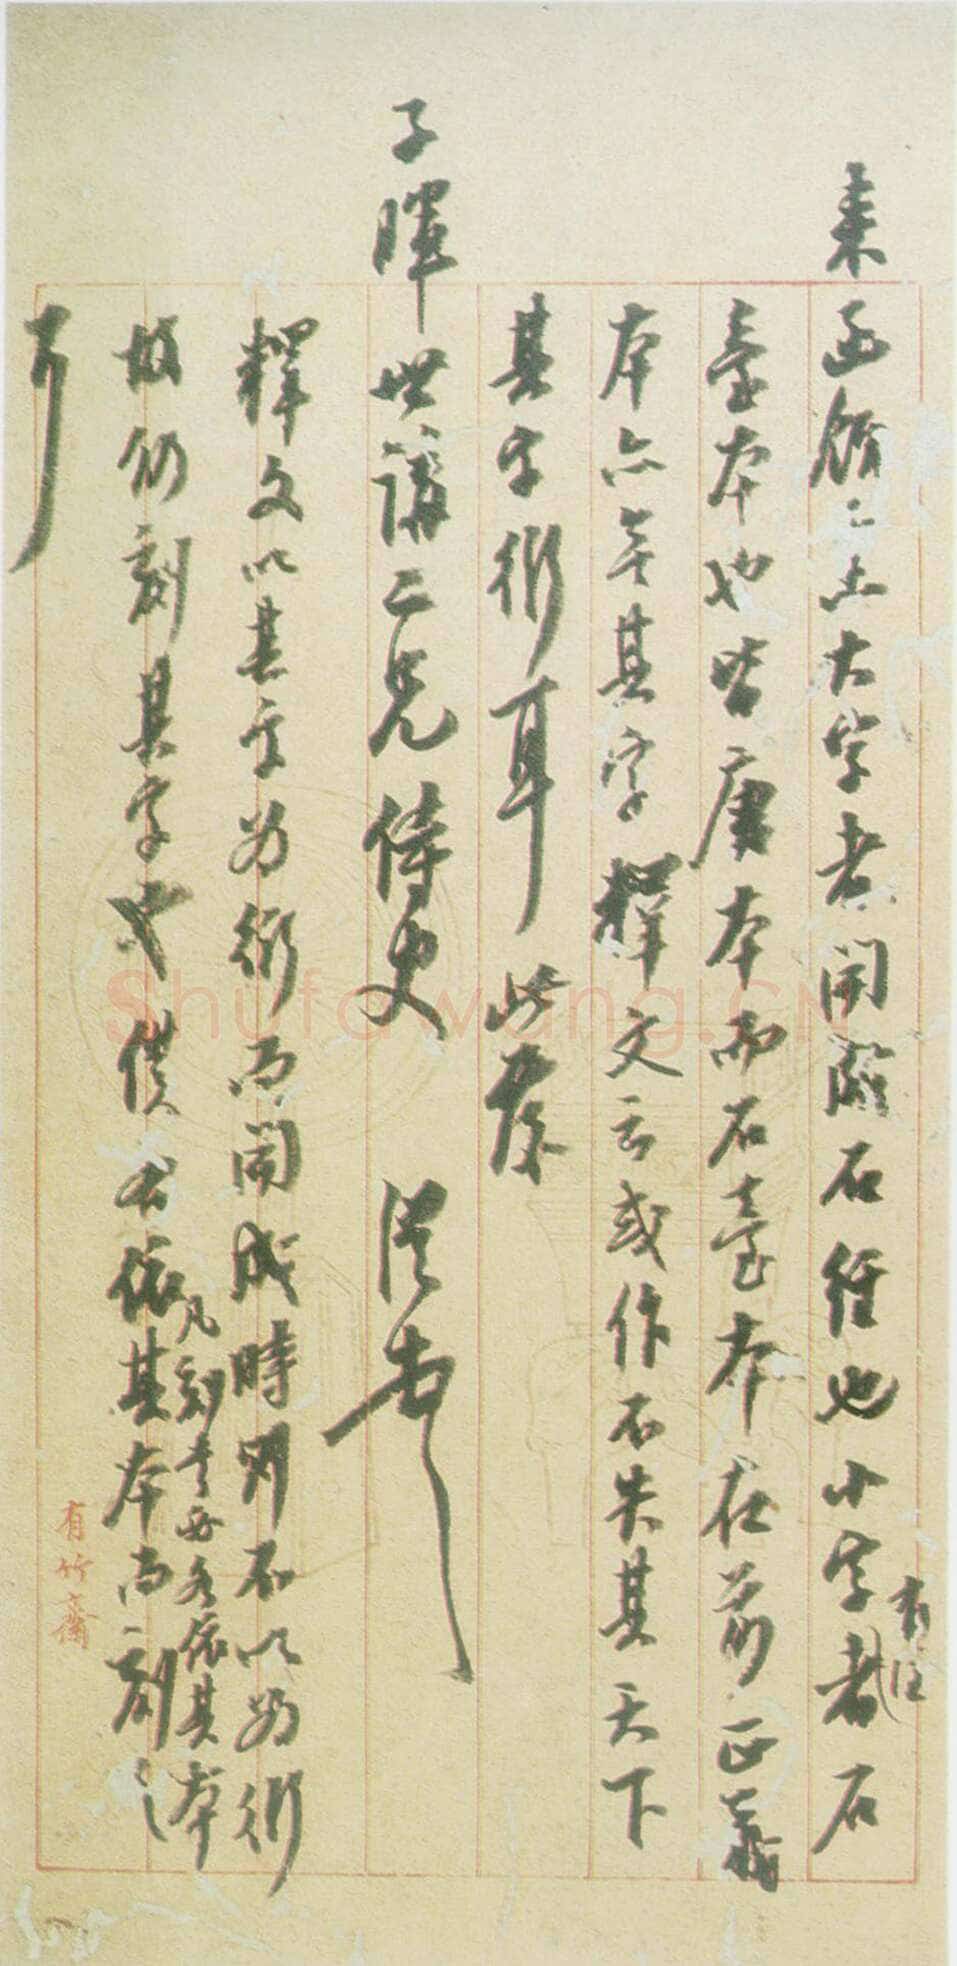 来函領二土大字者開成石經也小字者石
有注
臺本也皆唐本而石臺本在前正義
本亦無其字釋文云或作不失其天下
其字衍耳此落
子暉世講二兄侍史
釋文以其字为衍而開成時則不以为衍
故仍刻其字也僕右依其本而刻之
凡刻書要各依其本
耳
有竹齋
Shufawang.CN